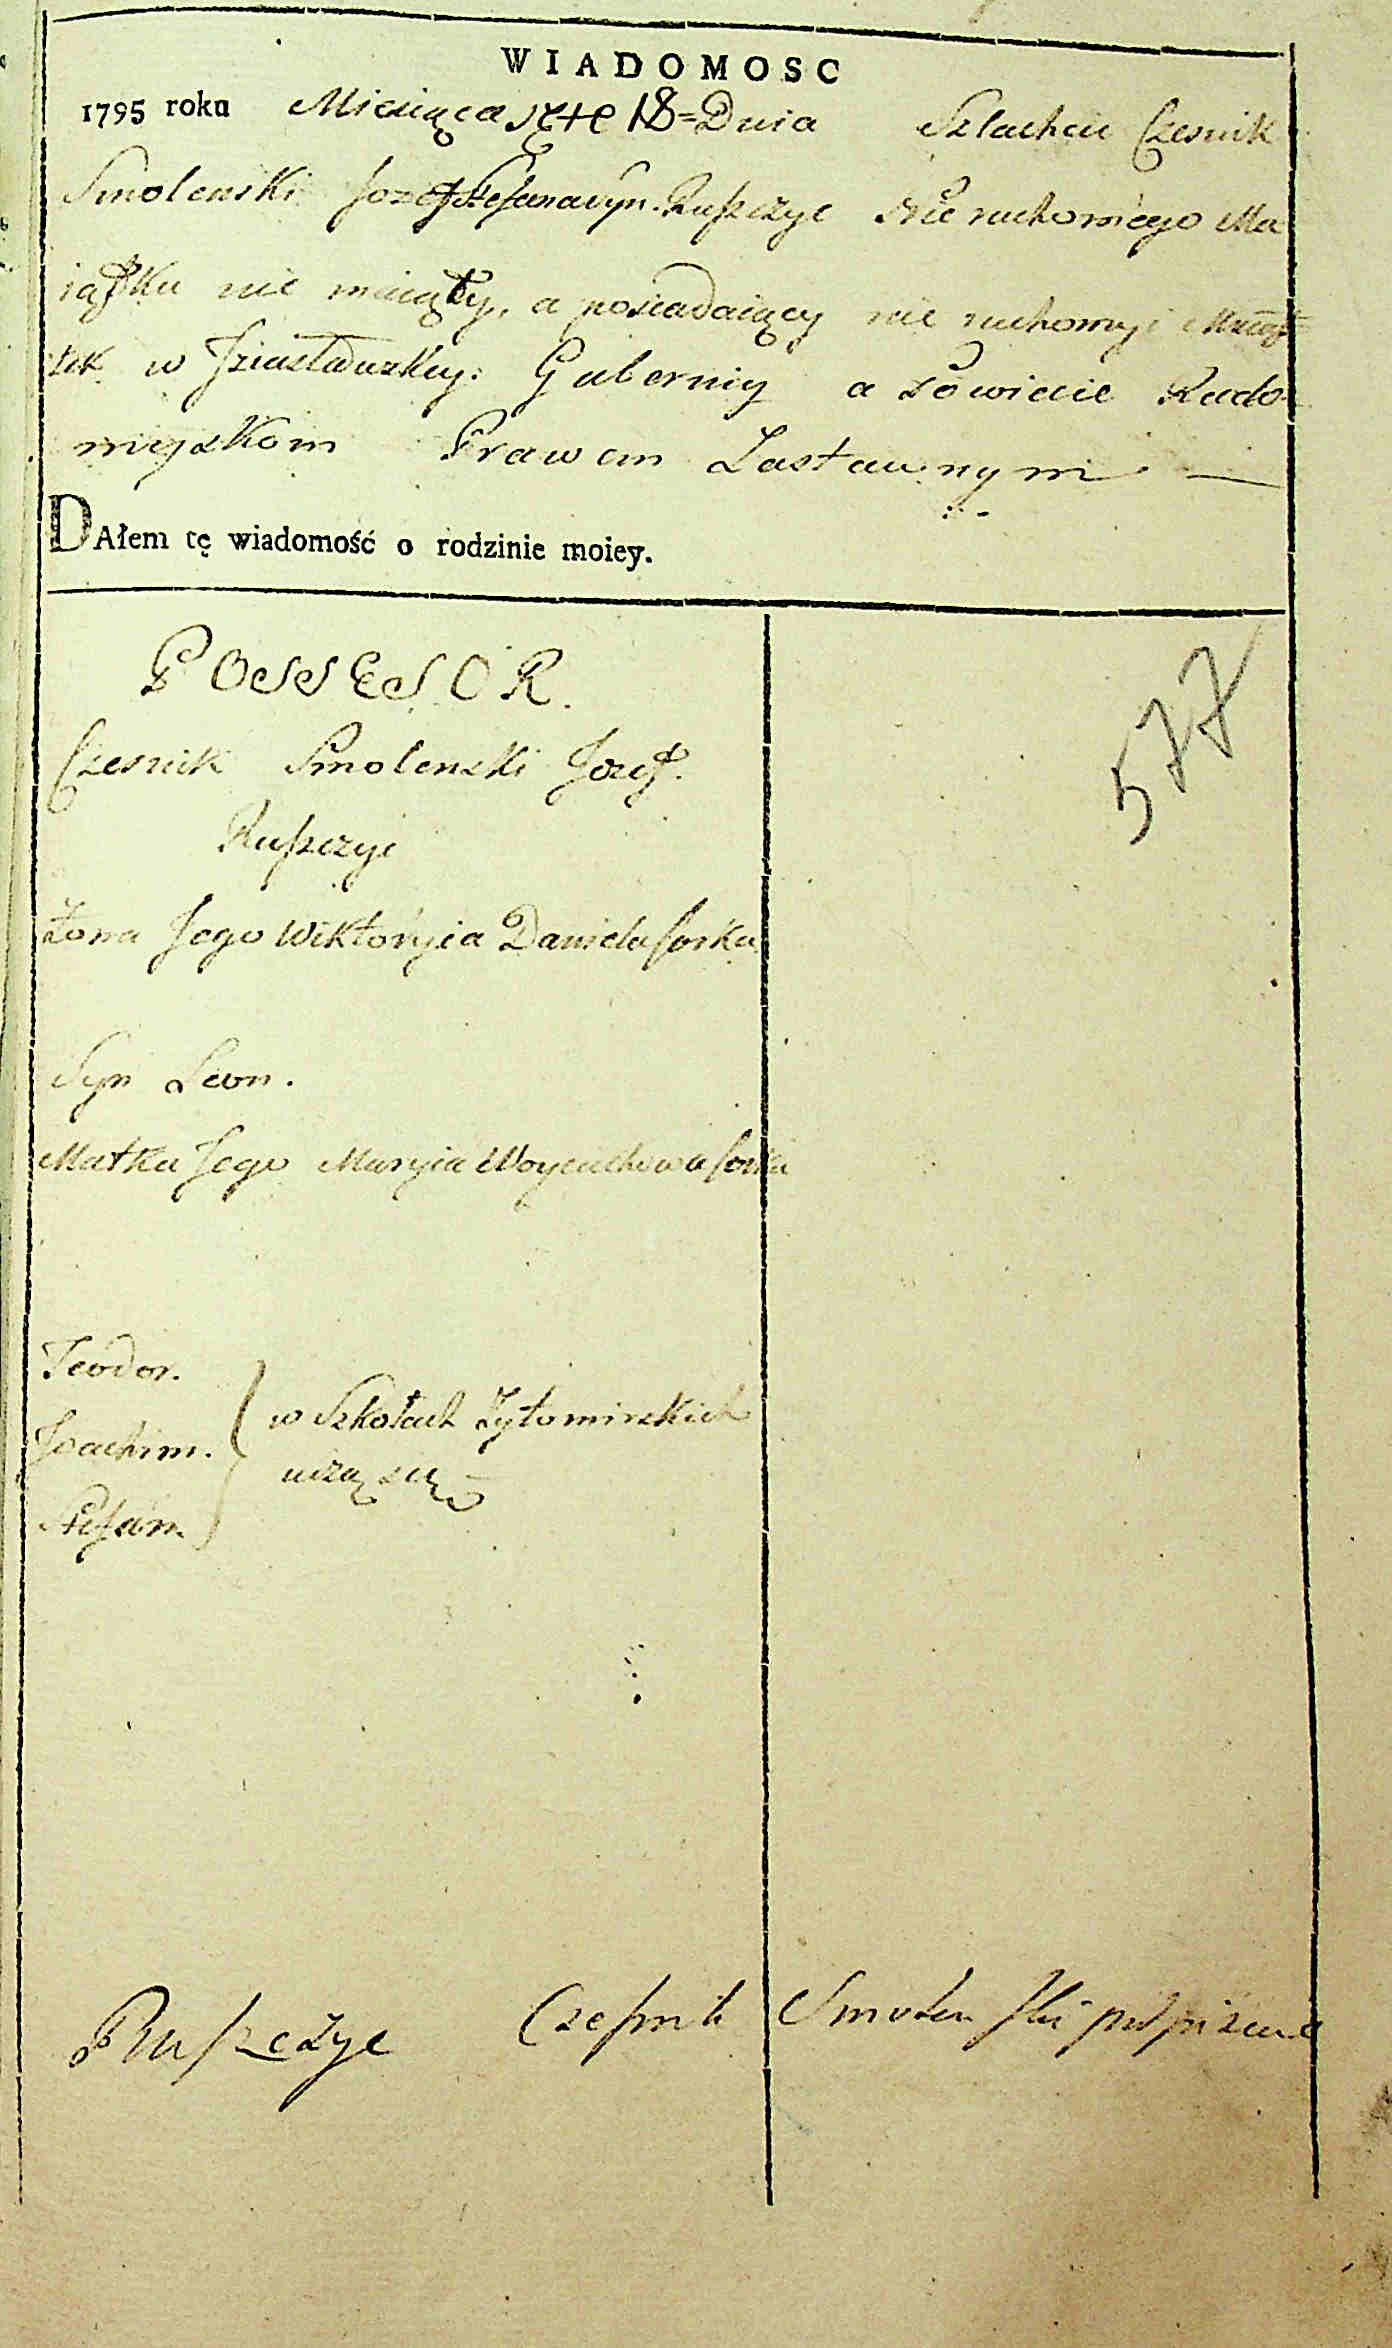 WIADOMOSC
1795 roku Miesiąca 18 = Dnia Szlachcic Czesnik
Smolenski Jozef Stefana syn Ruszczyc Nie ruchomego Ma
iątku nie maiący, a posiadaiący nie ruchomy Maiąt
tek w Jziasławskiey: Gubernij a Powiecie Rado-
myskom Prawem Zastawnym —
DAłem tę wiadomość o rodzinie moiey.
POSSESOR.
577
Czesnik Smolenski Jozef.
Ruszczyc
Żona Jego Wiktoryia Daniela Corka
Syn Leon.
Matka Jego Maryia Woyciechowa Corka
Teodor.
Joachim.
Stefan.
w Szkołach Żytomirskich
uczą się
Ruszczyc Czesnik Smolenski